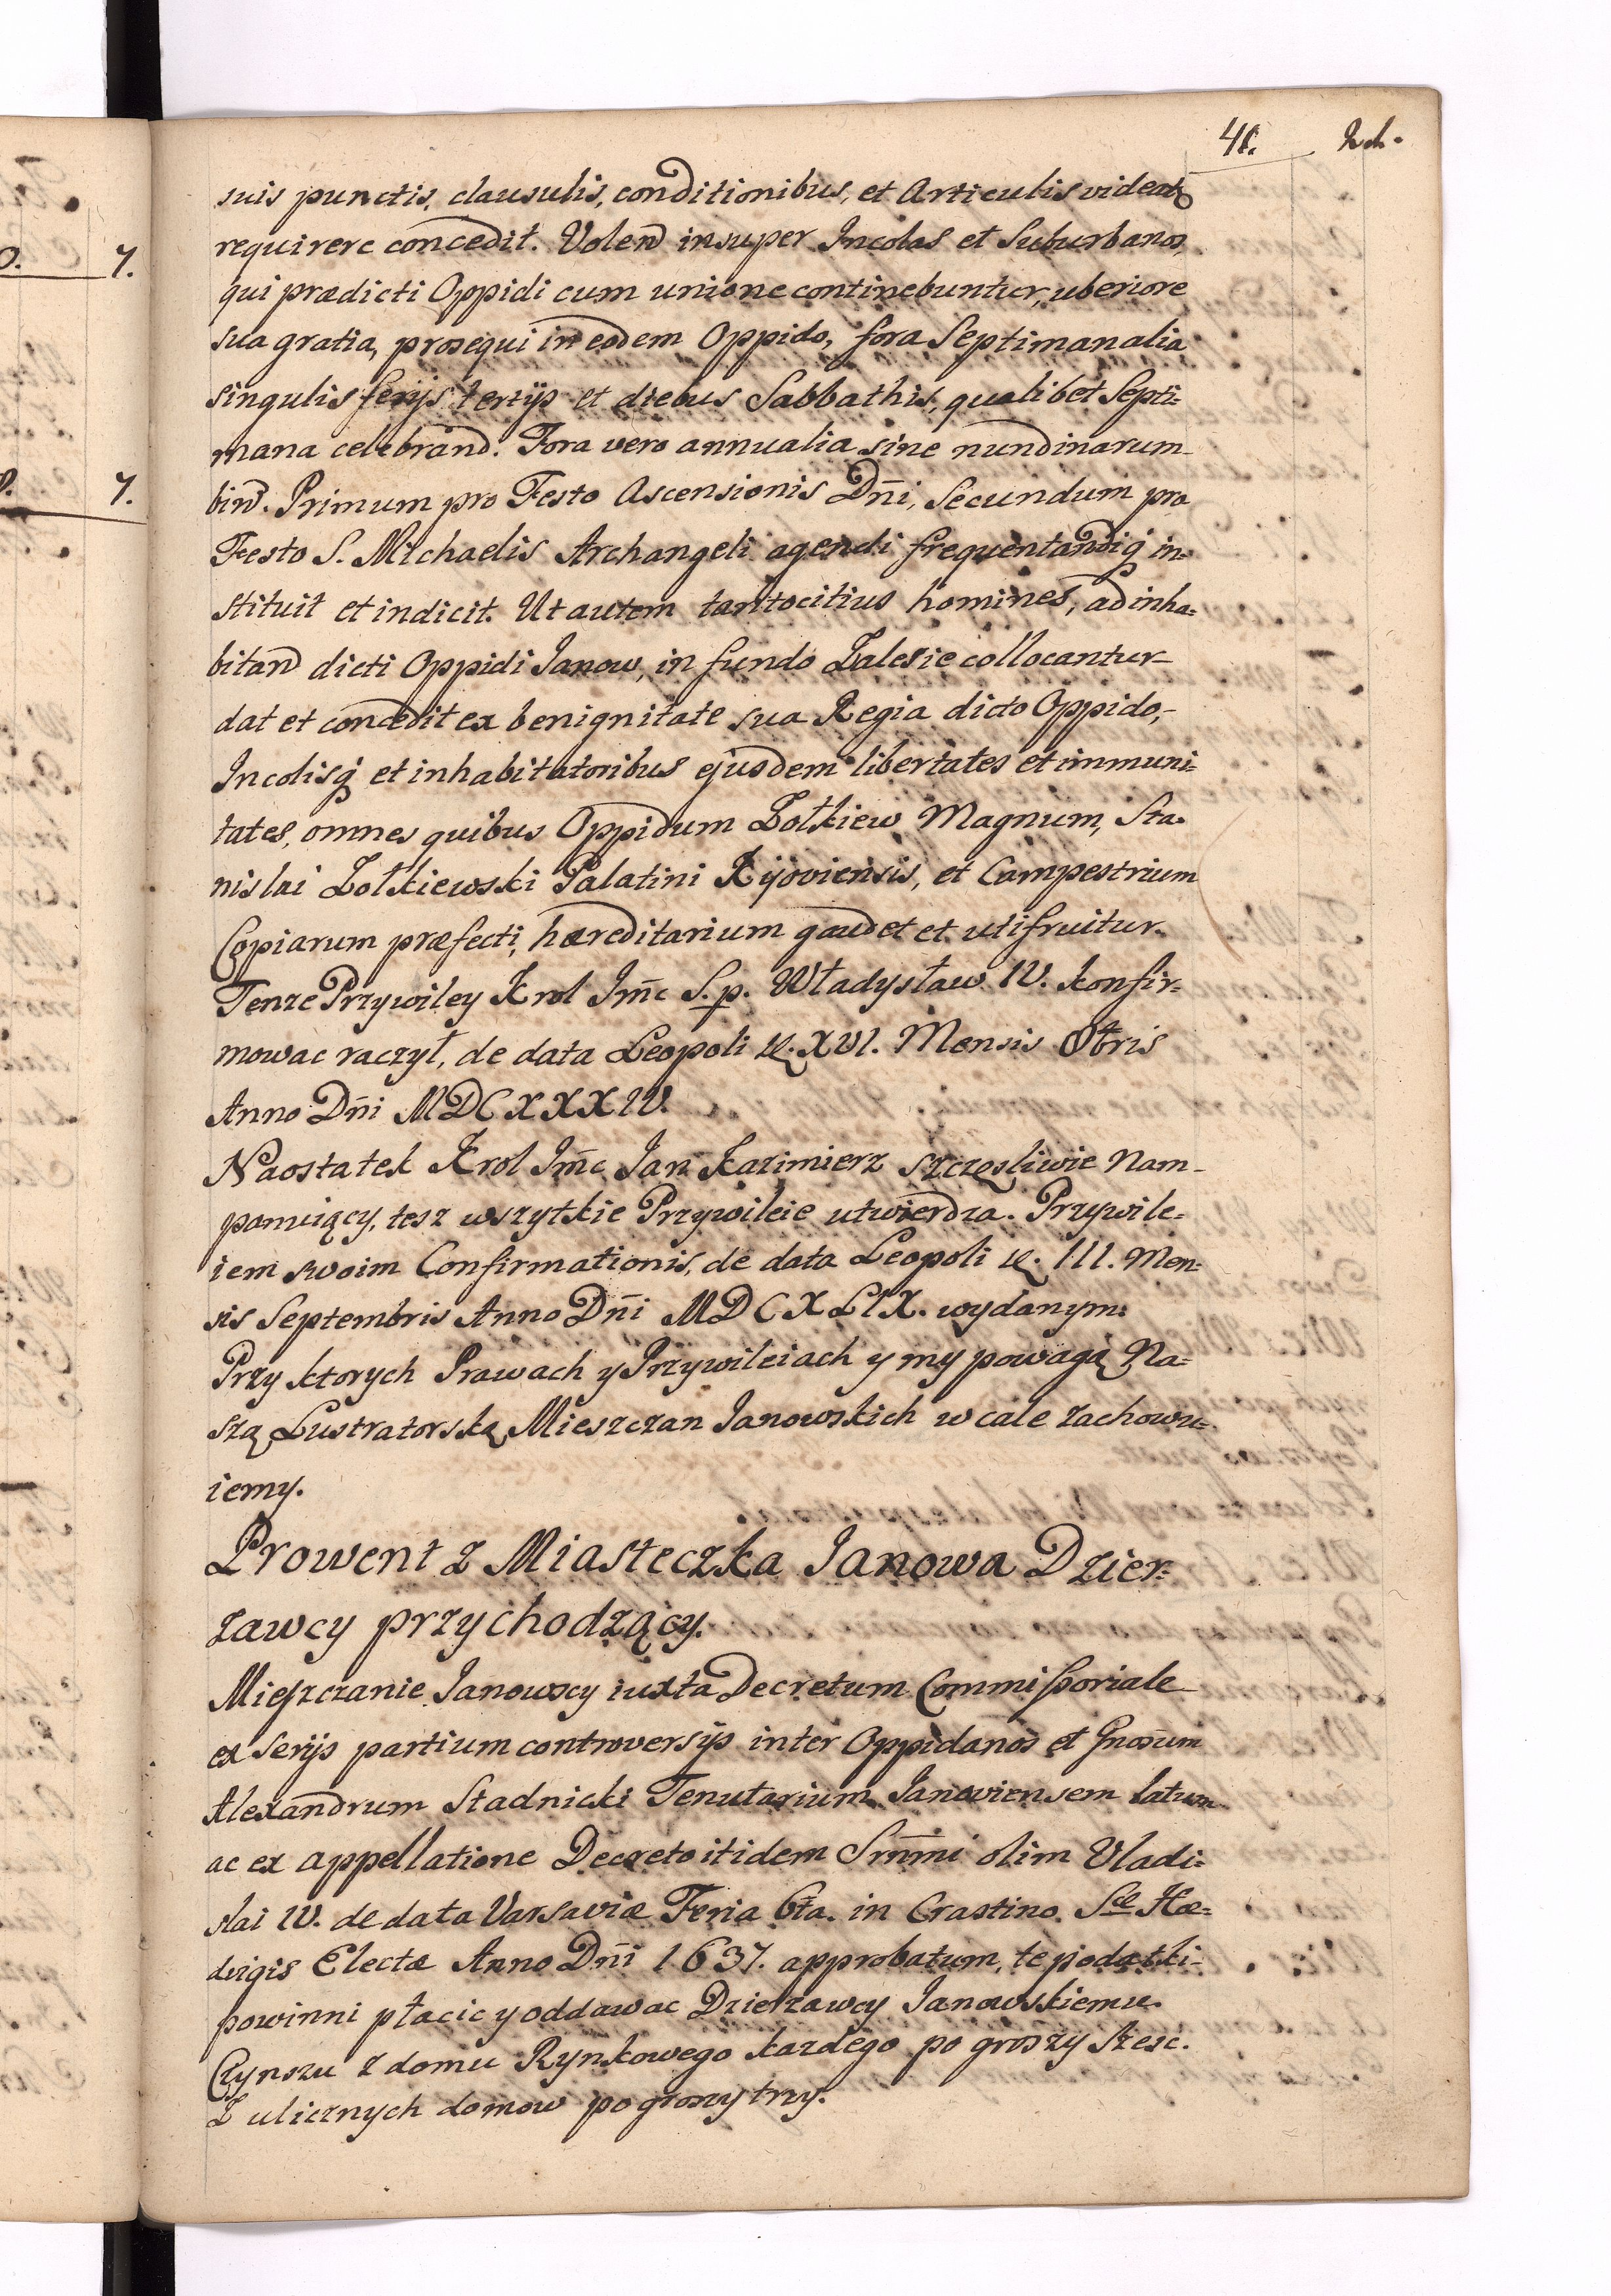 41.
suis punctis, clausulis, conditionibus, et Articulis videatq
requirere concedit. Volend insuper Incolas et Suburbanos,
qui prædicti Oppidi cum unione continebuntur, uberiore
sua gratia, prosequi in eodem Oppido, fora Septimanalia
singulis ferijs tertijs et diebus Sabbathis, qualibet Septi=
mana celebrand. Fora vero annualia sine nundinarum
bin. Primum pro Festo Ascensionis Dñi, Secundum pro
Festo S. Michaelis Archangeli agendi frequentandiq in=
stituit et indicit. Ut autem tantocitius homines, ad inha=
bitand dicti Oppidi Janow, in fundo Zalesie collocantur
dat et concedit ex benignitate sua Regia dicto Oppido,
Incolisq et inhabitatoribus ejusdem libertates et immuni=
tates, omnes quibus Oppidum Zołkiew Magnum, Sta=
nislai Zołkiewski Palatini Kijoviensis, et Campestrium
Copiarum præfecti, hæreditarium gaudet et utifruitur.
Tenze Przywiley Krol Jm̃c S. p. Władysław IV. konfir=
mowac raczył, de data Leopoli XVI. Mensis Obris
Anno Dñi MDCXXXIV.
Naostatek Krol Jm̃c Jan Kazimierz szczęsliwie Nam
panuiący, tesz wszytkie Przywileie utwierdza. Przywile=
iem swoim Confirmationis, de data Leopoli III. Men=
sis Septembris Anno Dñi MDCXLIX. wydanym.
Przy ktorych Prawach y Przywileiach y my powagą Na=
szą Lustratorską Mieszczan Janowskich w cale zachowu=
iemy.
Prowent z Miasteczka Janowa Dzier=
zawcy przychodzący.
Mieszczanie Janowscy iuxta Decretum Commissoriale
ex serijs partium controversijs inter Oppidanos et Gnosum
Alexandrum Stadnicki Tenutarium Janoviensem latum
ac ex appellatione Decreto itidem Srm̃mi olim Vladi=
slai IV. de data Varsaviæ Feria 6ta. in Crastino Scæ Hæ=
dvigis Electæ Anno Dñi 1637. approbatum, te podatki
powinni płacic y oddawac Dzierzawcy Janowskiemu.
Czynszu z domu Rynkowego kazdego po groszy szesc.
Z ulicznych domow po groszy trzy.
7.
7.